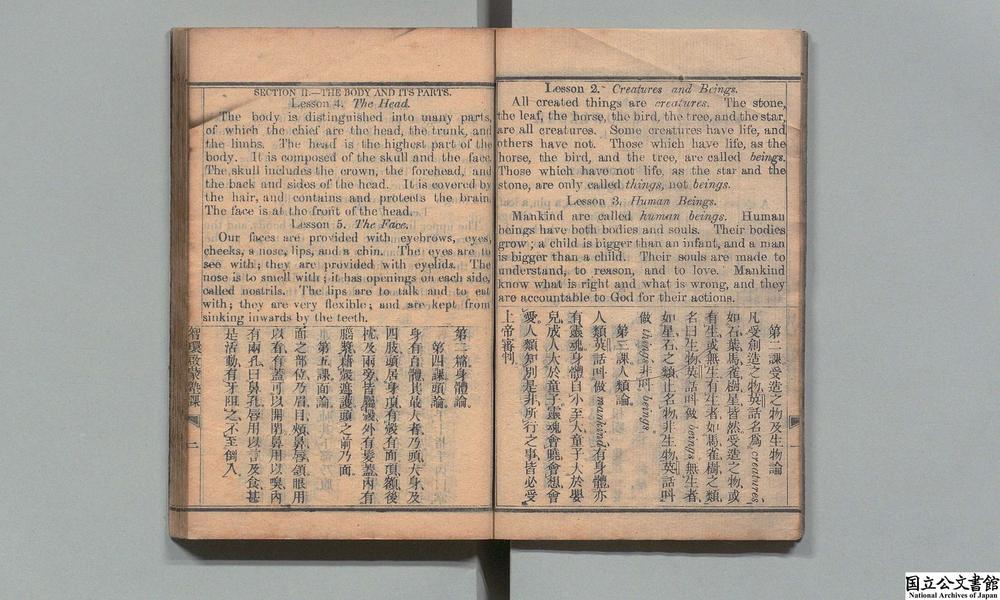 Lesson 2. Creatures and Beings.
All created things are creatures. The stone,
the leaf, the horse, the bird, the tree, and the star,
are all creatures. Some creatures have life, and
others have not. Those which have life, as the
horse, the bird, and the tree, are called beings.
Those which have not life, as the star and the
stone, are only called things, not beings.
Lesson 3. Human Beings.
Mankind are called human beings. Human
beings have both bodies and souls. Their bodies
grow; a child is bigger than an infant, and a man
is bigger than a child. Their souls are made to
understand, to reason, and to love. Mankind
know what is right and what is wrong, and they
are accountable to God for their actions.
第二課受造之物及生物論
凡受創造之物英話名為 creatures,
如石葉馬雀樹星皆然受造之物或
有生或無生有生者如馬雀樹之類
名曰生物英話叫做 beings 無生者
如星石之類止名物非生物英話叫
做 things 非叫 beings.
第三課人類論
人類英話叫做 mankind 有身體亦
有靈魂身體自小至大童子大於嬰
兒成人大於童子靈魂會曉會想會
愛人類知別是非所行之事皆必受
上帝審判
SECTION II.—THE BODY AND ITS PARTS.
Lesson 4. The Head.
The body is distinguished into many parts,
of which the chief are the head, the trunk, and
the limbs. The head is the highest part of the
body. It is composed of the skull and the face.
The skull includes the crown, the forehead, and
the back and sides of the head. It is covered by
the hair, and contains and protects the brain.
The face is at the front of the head.
Lesson 5. The Face.
Our faces are provided with eyebrows, eyes,
cheeks, a nose, lips, and a chin. The eyes are to
see with; they are provided with eyelids. The
nose is to smell with; it has openings on each side,
called nostrils. The lips are to talk and to eat
with; they are very flexible; and are kept from
sinking inwards by the teeth.
第二篇身體論
第四課頭論
身有百體其最大者乃頭大身及
四肢頭居身項有殼有面頂額後
枕及兩旁皆腦殼外有髮蓋內有
腦漿藉殼遮護頭之前乃面
第五課面論
面之部位乃眉目頰鼻唇頷眼用
以看有蓋可以開閉鼻用以嗅內
有兩孔曰鼻孔唇用以言及食甚
是活動有牙阻之不至倒入
智環啟蒙塾課
二
国立公文書館
National Archives of Japan